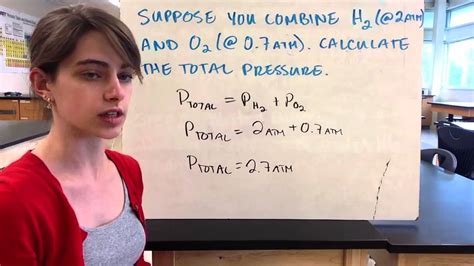 SUPPOSE YOU COMBINE H2 (@ 2ATM)
AND O2 (@ 0.7 ATM). CALCULATE
THE TOTAL PRESSURE.
PTOTAL = PH2 + PO2
PTOTAL = 2ATM + 0.7ATM
PTOTAL = 2.7 ATM